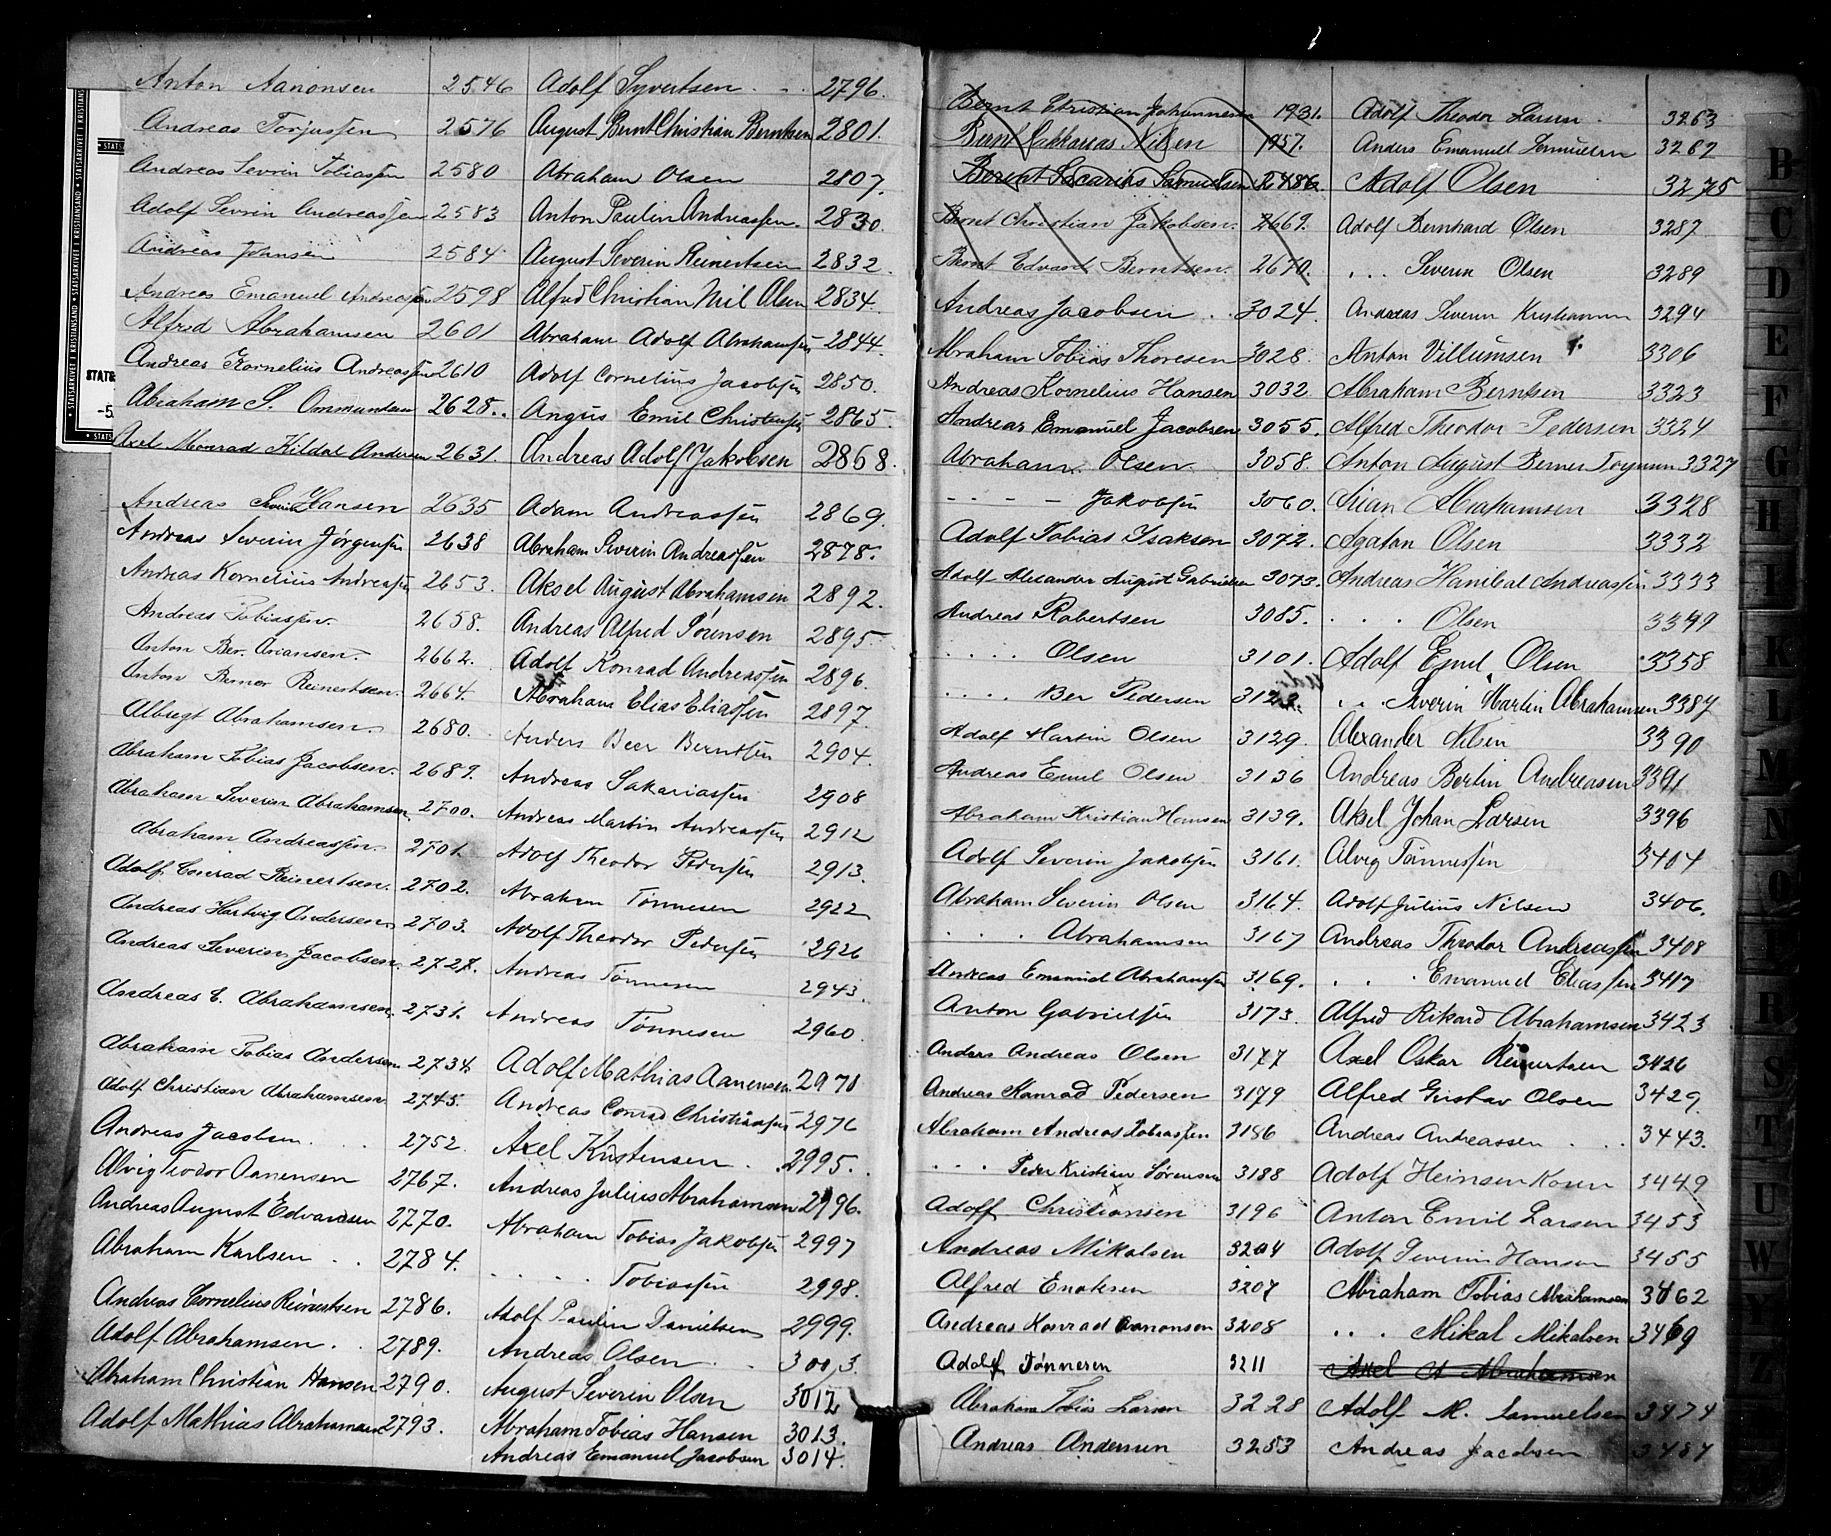 Anton Aanonsen 2546
Andreas Torjussen 2576
Andreas Sevrin Tobiassen 2580
Adolf Sevrin Andreassen 2583
Andreas Johnsen 2584
Andreas Emanuel Andreassen 2598
Alfred Abrahamsen 2601
Andreas Kornelius Andreassen 2610
Abraham S. Ommundsen 2628
Axel Monrad Kildal Andersen 2631.
Andreas Severin Hansen 2635
Andreas Severin Jørgensen 2638
Andreas Kornelius Andreassen 2653.
Andreas Tobiassen 2658.
Anton Ber. Ariansen. 2662.
Anton Berner Reinertsen. 2664.
Albregt Abrahamsen. 2680.
Abraham Tobias Jacobsen. 2689.
Abraham Severin Abrahamsen. 2700.
Abraham Andreassen. 2701.
Adolf Conrad Reinertsen. 2702.
Andreas Hartvig Andersen 2703.
Andreas Severin Jacobsen. 2727.
Andreas E. Abrahamsen. 2731.
Abraham Tobias Andersen 2734.
Adolf Christian Abrahamsen 2745.
Andreas Jacobsen. 2752.
Alvig Teodor Aanensen 2767.
Andreas August Edvardsen 2770.
Abraham Karlsen 2784.
Andreas Cornelius Reinertsen 2786.
Adolf Abrahamsen. 2789.
Abraham Christian Hansen 2790.
Adolf Mathias Abrahamsen 2793.
Adolf Syvertsen 2796.
August Bernt Christian Berntsen 2801.
Abraham Olsen 2807.
Anton Paulin Andreassen. 2830.
August Severin Reinertsen 2832.
Alfred Christian Olsen 2834.
Abraham Adolf Abrahamsen 2844.
Adolf Cornelius Jacobsen 2850.
Angus Emil Christensen 2865.
Andreas Adolf Jakobsen 2868.
Adam Andreassen 2869.
Abraham Severin Andreassen 2878.
Aksel August Abrahamsen 2892.
Andreas Alfred Sørensen 2895.
Adolf Konrad Andreassen 2896.
Abraham Elias Eliassen 2897.
Anders Beer Berntsen 2904.
Andreas Sakariassen 2908
Andreas Martin Andreassen 2912
Adolf Theodor Pedersen 2913.
Abraham Tønnesen 2922
Adolf Theodor Pedersen 2926
Andreas Tønnesen 2943.
Andreas Tønnesen 2960
Adolf Mathias Aanensen 2970
Andreas Conrad Christiansen 2976
Axel Kristensen 2995.
Andreas Julius Abrahamsen 2996.
Abraham Tobias Jakobsen 2997
. . . . Tobiassen 2998.
Adolf Paulin Danielsen 2999.
Andreas Olsen 3003
August Severin Olsen 3012
Abraham Tobias Hansen 3013.
Andreas Emanuel Jacobsen 3014.
Bernt Christian Johannesen 1931.
Bernt Sakkarias Nilsen 1957.
Berent Sacarias Samuelsen 2486
Bernt Christian Jakobsen. 2669.
Bernt Edvard Berntsen. 2670.
Andreas Jacobsen 3024.
Abraham Tobias Thoresen 3028.
Andreas Kornelius Hansen 3032
Andreas Emanuel Jacobsen 3055.
Abraham Olsen 3058.
- - - - Jakobsen 3060.
Adolf Tobias Isaksen 3072.
Adolf Alexander August Gabrielsen 3073.
Andreas Robertsen 3085.
. . . . Olsen 3101.
. . . . Ber Pedersen 3123.
Adolf Martin Olsen 3129.
Andreas Emil Olsen 3136
Abraham Kristian Hansen 3139.
Adolf Severin Jakobsen 3161.
Abraham Severin Olsen 3164.
. . . Abrahamsen 3167
Andreas Emanuel Abrahamsen 3169.
Anton Gabrielsen 3173.
Anders Andreas Olsen 3177
Andreas Konrad Pedersen 3179
Abraham Andreas Tobiassen 3186
. . . Peder Kristian Sørensen 3188
Adolf Christiansen 3196
Andreas Mikalsen 3204
Alfred Enoksen 3207
Andreas Konrad Aanonsen 3208
Adolf Tønnesen 3211
Abraham Tobias Larsen 3228
Andreas Andersen 3253
Adolf Theodor Larsen 3263
Anders Emanuel Samuelsen 3267
Adolf Olsen 3275
Adolf Bernhard Olsen 3287
. . . Severin Olsen 3289
Andreas Severin Kristiansen 3294
Anton Villumsen 3306
Abraham Berntsen 3323
Alfred Theodor Pedersen 3324
Anton August Berner 3327
Abrahamsen 3328
Agaton Olsen 3332
Andreas Hanibal Andreassen 3333
. . . Olsen 3349
Adolf Emil Olsen 3358
. . . Severin Martin Abrahamsen 3387
Alexander Nilsen 3390
Andreas Bertin Andreasen 3391
Aksel Johan Larsen 3396
Alvig Tønnessen 3404
Adolf Julius Nilsen 3406.
Andreas Theodor Andreassen 3408
. . . Emanuel Eliassen 3417
Alfred Rikard Abrahamsen 3423
Axel Oskar Reinertsen 3426
Alfred Gustav Olsen 3429.
Andreas Andreassen . . . 3443.
Adolf Heinsen 3449
Anton Emil Larsen 3453
Adolf Severin Hansen 3455
Abraham Tobias Abrahamsen 3462
. . . Mikal Mikalsen 3469
Axel A Abrahamsen
Adolf M. Samuelsen 3474
Andreas Jacobsen 3487
B
C
D
E
F
G
H
I
K
L
M
N
O
P
R
S
T
U
W
Y
Z
STATSARKIVET I KRISTIANSAND